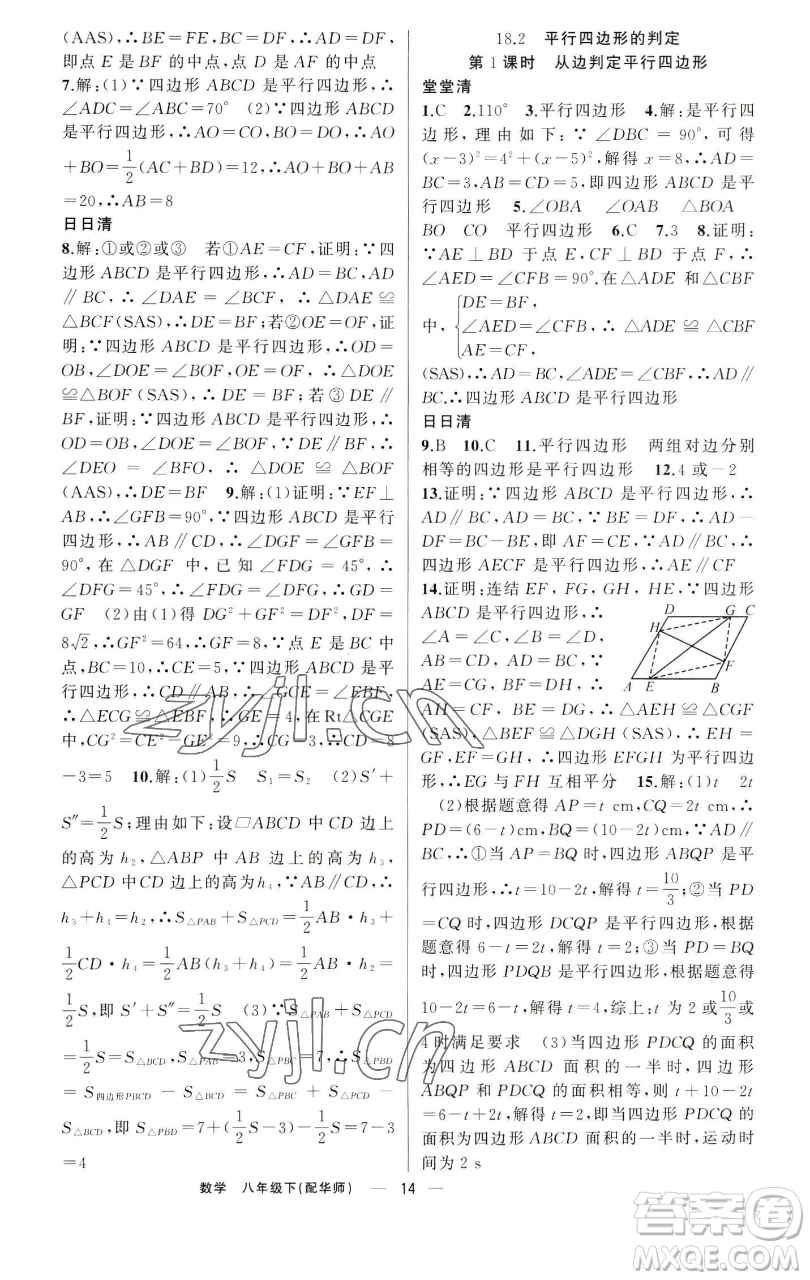 (AAS),∴BE=FE,BC=DF,∴AD=DF,
即点 E 是 BF 的中点,点 D 是 AF 的中点
7.解:(1)∵四边形 ABCD 是平行四边形,∴
∠ADC=∠ABC=70° (2)∵四边形 ABCD
是平行四边形,∴AO=CO,BO=DO,∴AO
+BO=1/2(AC+BD)=12,∴AO+BO+AB
=20,∴AB=8
日日清
8.解:①或②或③ 若①AE=CF,证明:∵四
边形 ABCD 是平行四边形,∴AD=BC,AD
∥BC,∴∠DAE=∠BCF,∴△DAE≌
△BCF(SAS),∴DE=BF;若②OE=OF,证
明:∵四边形 ABCD 是平行四边形,∴OD=
OB,∠DOE=∠BOF,∴△DOE
≌△BOF(SAS),∴DE=BF;若③DE∥
BF,证明:∵四边形 ABCD 是平行四边形,∴
OD=OB,∠DOE=∠BOF,∵DE∥BF,∴
∠DEO=∠BFO,∴△DOE≌△BOF
(AAS),∴DE=BF 9.解:(1)证明:∵EF⊥
AB,∴∠GFB=90°,∵四边形 ABCD 是平行
四边形,∴AB∥CD,∴∠DGF=∠GFB=
90°,在△DGF 中,已知∠GDF=45°,∴
∠DFG=45°,∴∠GDF=∠DFG,∴GD=
GF (2)由(1)得 DG²+GF²=DF²,DF=
8√2,∴GF²=64,∴GF=8,∵点 E 是 BC 中
点,BC=10,∴CE=5,∵四边形 ABCD 是平
行四边形,∴CD∥AB,∴∠GCE=∠EBF,
∴△ECG≌△EBF,∴GE=4,在 Rt△CGE
中,CG²=CE²-GE²=9,∴CG=3,∴CD=8
-3=5 10.解:(1)1/2S S₁=S₂ (2)S′+
S″=1/2S;理由如下:设▱ABCD 中 CD 边上
的高为 h₂,△ABP 中 AB 边上的高为 h₃,
△PCD 中 CD 边上的高为 h₄,∵AB=CD,∴
h₃+h₄=h₂,∴S△PAB+S△PCD=1/2AB·h₃+
1/2CD·h₄=1/2AB(h₃+h₄)=1/2AB·h₂=
1/2S,即 S′+S″=1/2S (3)∵S△PAB+S△PCD
=1/2S=S△BCD,S△PAB=3,S△PBC=7,∴S△PBD
=S四边形PBCD-S△BCD=S△PBC+S△PCD-
S△BCD,即 S△PBD=7+(1/2S-3)-1/2S=7-3
=4
18.2 平行四边形的判定
第 1 课时 从边判定平行四边形
堂堂清
1.C 2.110° 3.平行四边形 4.解:是平行四
边形,理由如下:∵∠DBC=90°,可得
(x-3)²=4²+(x-5)²,解得 x=8,∴AD=
BC=3,AB=CD=5,即四边形 ABCD 是平
行四边形 5.∠OBA ∠OAB △BOA
BO CO 平行四边形 6.C 7.3 8.证明:
∵AE⊥BD 于点 E,CF⊥BD 于点 F,∴
∠AED=∠CFB=90°.在△ADE 和△CBF
中,{DE=BF,
∠AED=∠CFB,∴△ADE≌△CBF
AE=CF,
(SAS),∴AD=BC,∠ADE=∠CBF,∴AD∥
BC.∴四边形 ABCD 是平行四边形
日日清
9.B 10.C 11.平行四边形 两组对边分别
相等的四边形是平行四边形 12.4 或-2
13.证明:∵四边形 ABCD 是平行四边形,∴
AD∥BC,AD=BC,∵BE=DF,∴AD-
DF=BC-BE,即 AF=CE,∵AD∥BC,∴
四边形 AECF 是平行四边形,∴AE∥CF
14.证明:连结 EF,FG,GH,HE,∵四边形
ABCD 是平行四边形,∴
∠A=∠C,∠B=∠D,
AB=CD,AD=BC,∵
AE=CG,BF=DH,∴
AH=CF,BE=DG,∴△AEH≌△CGF
(SAS),△BEF≌△DGH(SAS),∴EH=
GF,GH=EF,∴四边形 EFGH 为平行四边
形,∴EG 与 FH 互相平分 15.解:(1)t 2t
(2)根据题意得 AP=t cm,CQ=2t cm,∴
PD=(6-t)cm,BQ=(10-2t)cm,∵AD∥
BC,∴①当 AP=BQ 时,四边形 ABQP 是平
行四边形,∴t=10-2t,解得 t=10/3;②当 PD
=CQ 时,四边形 DCQP 是平行四边形,根据
题意得 6-t=2t,解得 t=2;③当 PD=BQ
时,四边形 PDQB 是平行四边形,根据题意得
10-2t=6-t,解得 t=4,综上:t 为 2 或10/3或
4 时满足要求 (3)当四边形 PDCQ 的面积
为四边形 ABCD 面积的一半时,四边形
ABQP 和 PDCQ 的面积相等,则 t+10-2t
=6-t+2t,解得 t=2,∴当四边形 PDCQ 的
面积为四边形 ABCD 面积的一半时,运动时
间为 2 s
D G C
H
F
A E B
数学 八年级下(配华师) — 14 —
zyjl.cn
zyjl.cn
答案圈
MXQE.COM